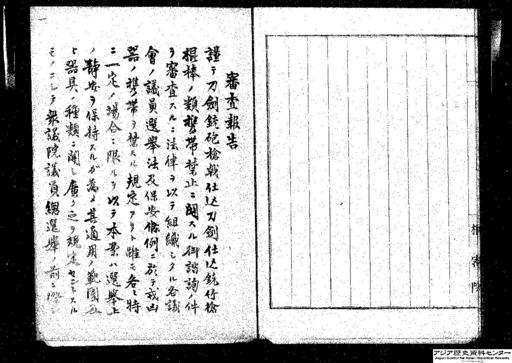 審査報告
謹テ刀劍銃砲槍戟仕込刀劍仕込銃仕槍
棍棒ノ類携帶禁止ニ関スル御諮詢ノ件
ヲ審査スルニ法律ヲ以テ組織シタル各議
會ノ議員選挙法及保安條例ニ於テ戎凶
器ノ携帶ヲ禁スル規定アリト雖モ各々特
ニ一定ノ場合ニ限ルヲ以テ本案ハ選挙上
ノ靜安ヲ保持スルガ為メ其適用ノ範圍並
ト器具ノ種類ニ関シ廣ク之ヲ規定セントスル
モノニシテ衆議院議員總選挙ノ前ニ
樞密院
アジア歴史資料センター
Japan Center for Asian Historical Records